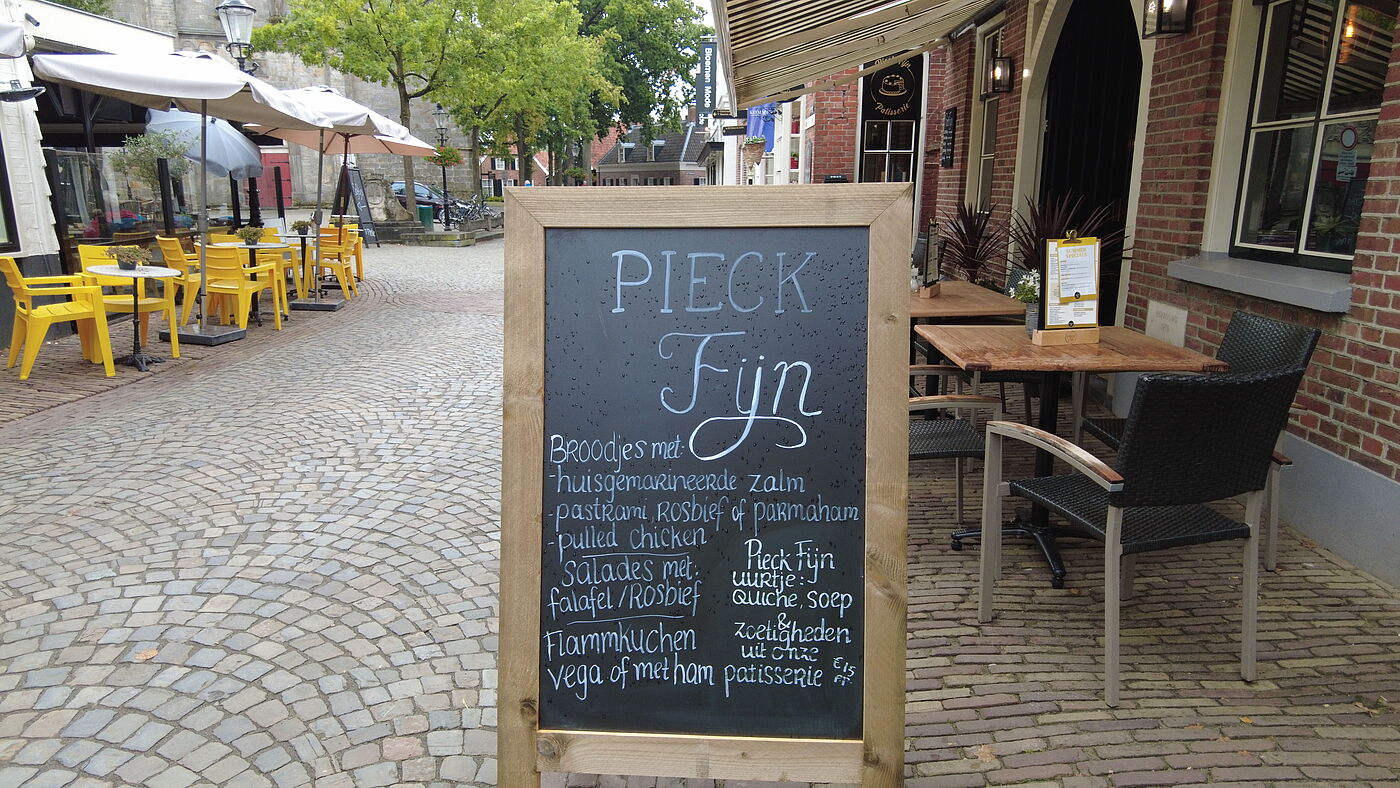 PIECK
Fijn
Broodjes met:
-huisgemarineerde zalm
-pastrami, rosbief of parmaham
-pulled chicken
Salades met:
falafel/rosbief
Flammkuchen
vega of met ham
Pieck Fijn
uurtje:
Quiche, soep
&
zoetigheden
uit onze
patisserie €15
Bloemen Mode
Patisserie
SUMMER
SPECIALS